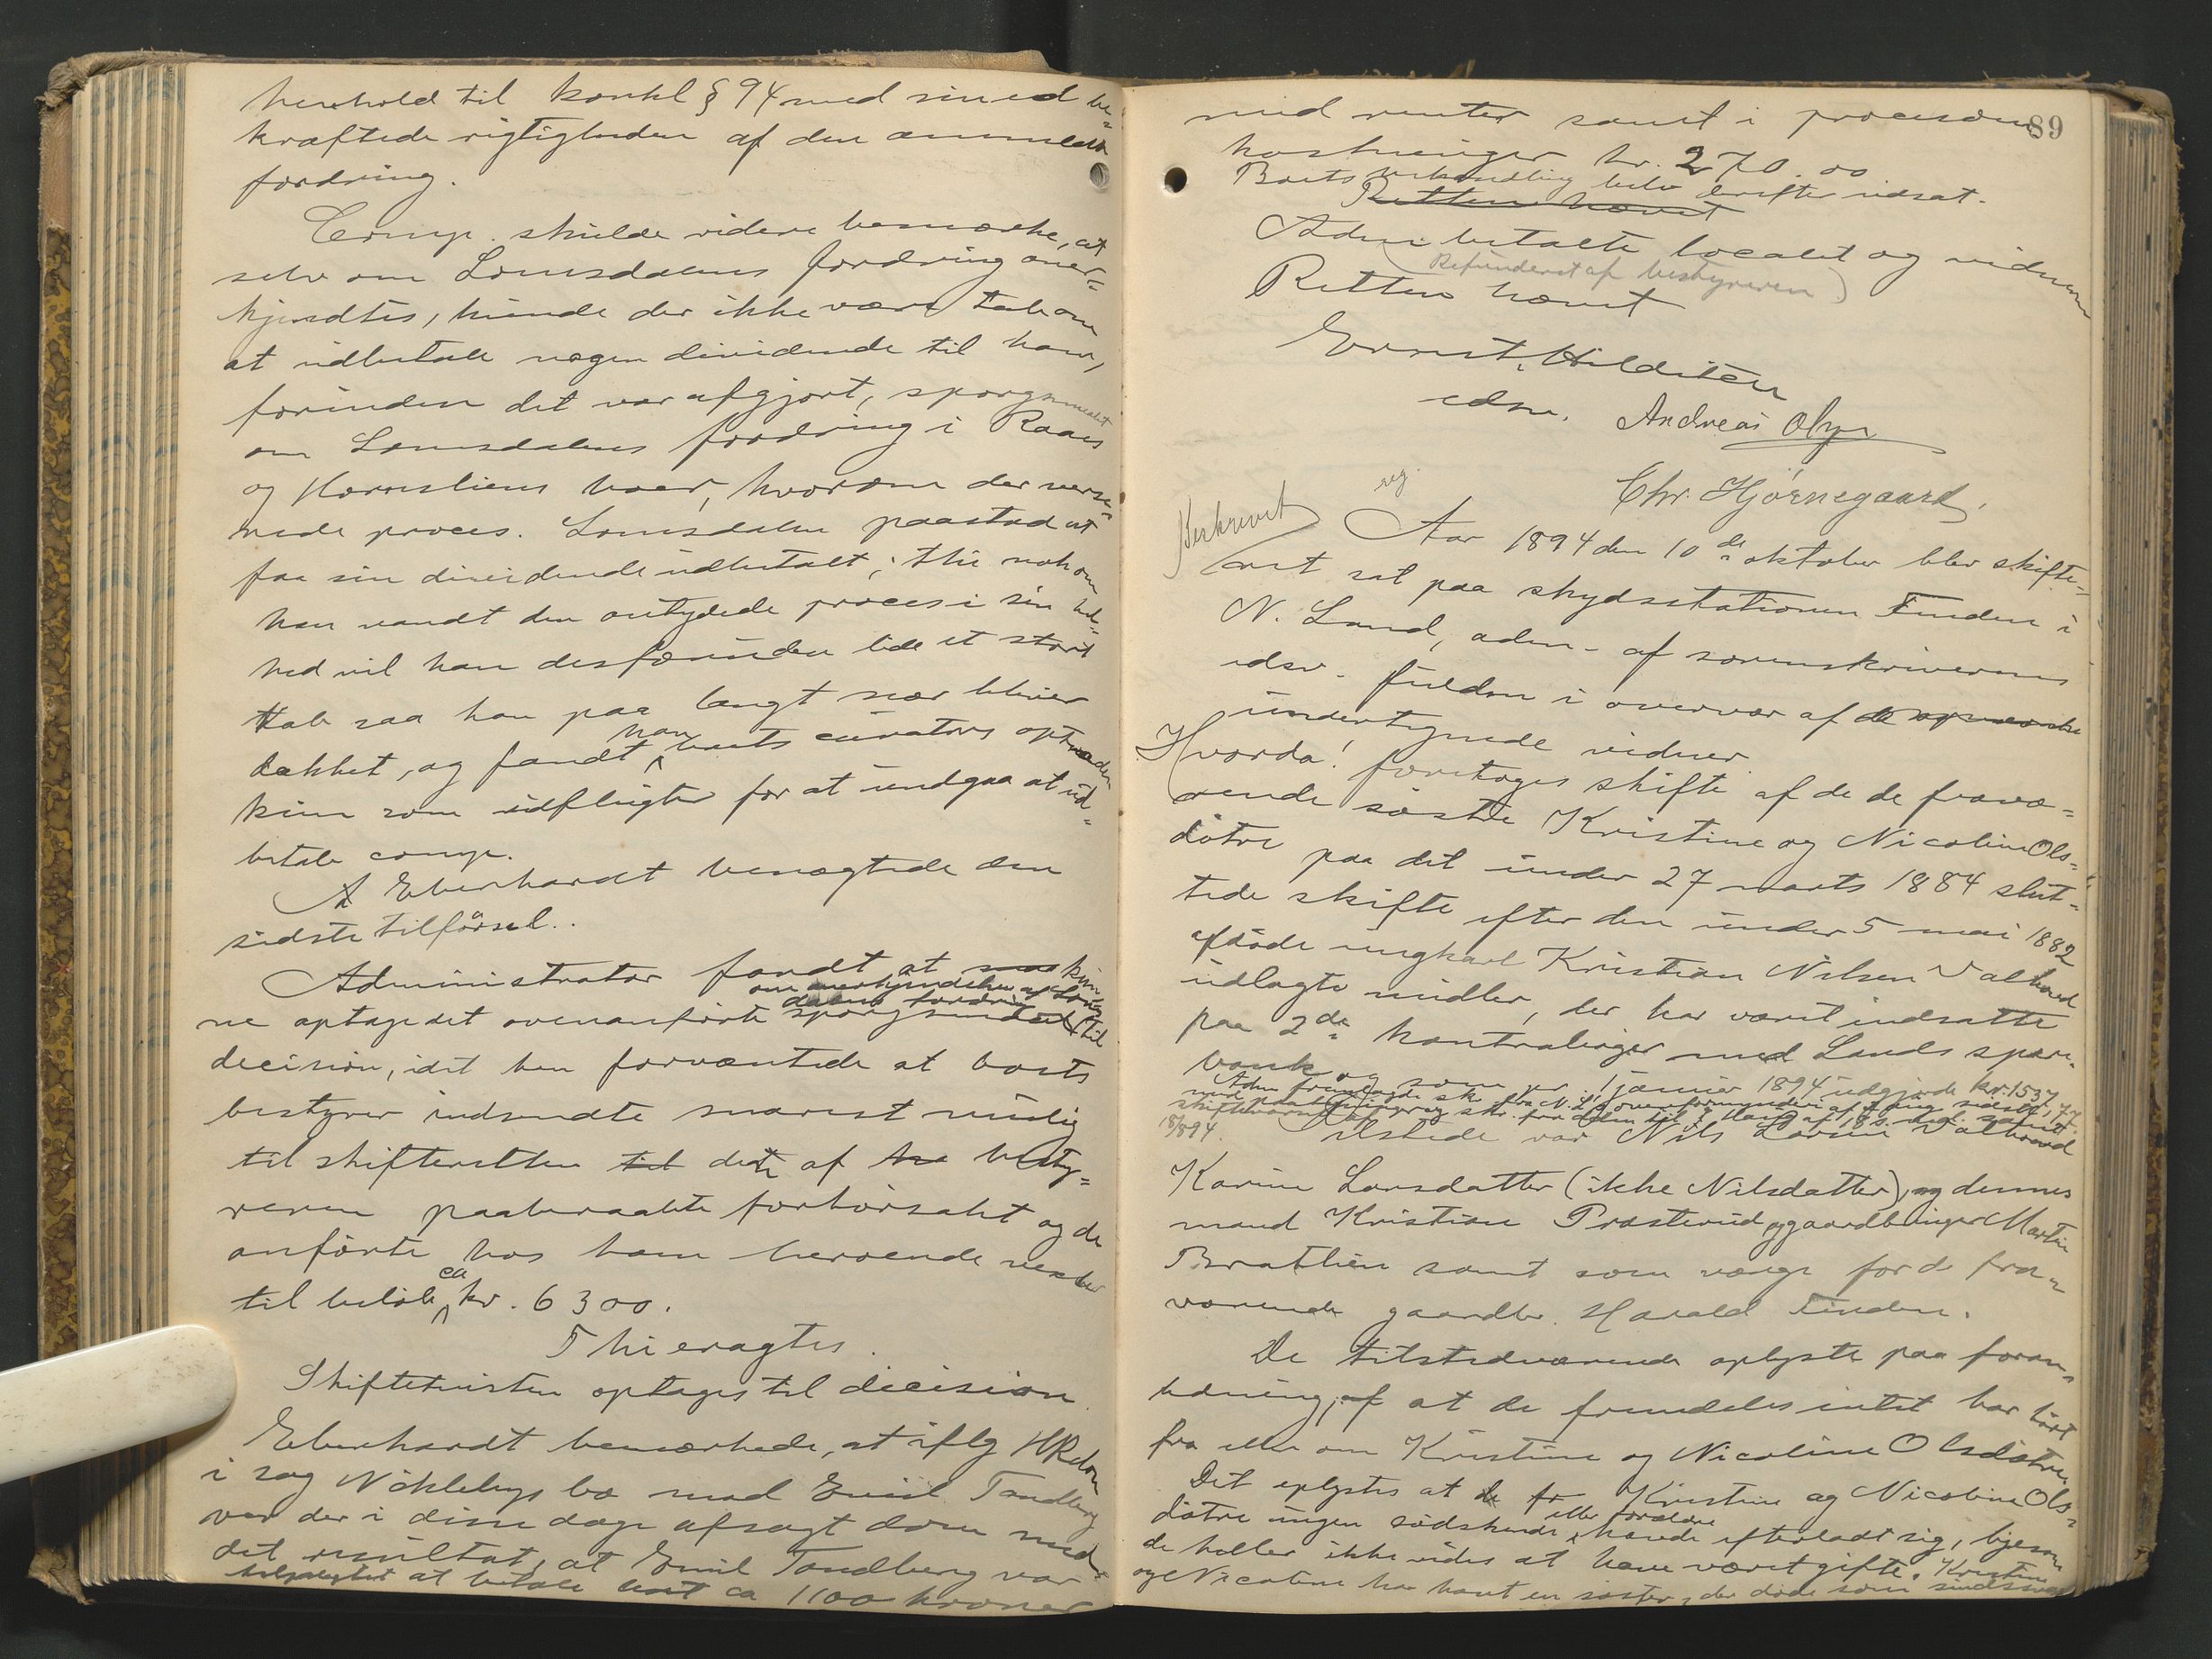 henhold til konkl § 94 med sin ed be-
kræftede rigtigheden af den anmeldte
fordring.
Comp. skulde videre bemærke, at
selv om Lomsdalens fordring aner-
kjendtes, kunde der ikke være tale om
at udbetale nogen dividende til ham,
forinden det var afgjort, spørgsmaalet
om Lomsdalens fordring i Raaes
og Hornsliens boer, hvorom der verse-
rede proces. Lomsdalen paastod at
faa sin dividende udbetalt; thi nok om
han vandt den antydede proces i sin hel-
hed vil han desforinden lide et stort
tab saa han paa langt nær bliver
dækket, og fandt han boets curators optræden
kun som udflugter for at undgaa at ud-
betale comp.
A Eberhardt benægtede den
sidste tilførsel.
Administrator fandt at kun-
om anerkjendelse af Loms-
dalens fordring
ne optage det ovenanførte spørgsmaal til
decision, idet han forventede at boets
bestyrer indsendte snarest mulig
til skifteretten til dette af besty-
reren paaberaabte forhørsakt og de
anførte hos ham beroende vexler
til beløb ca kr. 6300.
Thi eragtes.
Skiftetvisten optages til decision
Eberhardt bemærkede, at iflg HRdom
i sag Nøklebys bo mod Emil Tandberg
var der i disse dage afsagt dom med
det resultat, at Emil Tandberg var
tilpligtet at betale boet ca 1100 kroner
89
med renter samt i procesom-
kostninger kr. 270.00
Boets behandling blev derefter udsat.
Retten hævet
Adm. betalte localet og vidnerne
(Refunderet af bestyreren)
Retten hævet
Ernst Hilditch
edsv. Andreas Olsen
Chr. Hjørnegaard.
reg.
Beskrevet
Aar 1894 den 10de oktober blev skifte-
ret sat paa skydsstationen Finden i
N. Land, adm. af sorenskriverens
edsv. fuldm i overvær af de
undertegnede vidner.
Hvorda! foretoges skifte af de de fravæ-
rende søstre Kristine og Nicoline Ols-
døtre paa det under 27 marts 1884 slut-
tede skifte efter den under 5 mai 1882
afdøde ungkarl Kristian Nilsen Valhovd
udlagte midler, der har været indsatte
paa 2de kontrabøger med Lands spare-
bank og som pr. 1 januar 1894 udgjorde kr. 1537,77
Adm fremlagde skr. fra N. L's overformynderi af
18/8 94.
Tilstede var Nils Larsen Valhovd
Karine Larsdatter (ikke Nilsdatter), og dennes
mand Kristian Præsterud, gaardbruger Martin
Bratlien samt som værge for de fra-
værende gaardbr. Harald Finden.
De tilstedeværende oplyste paa foran-
ledning, af at de fremdeles intet har hørt
fra eller om Kristine og Nicoline Olsdøtre.
Det oplystes at de fr Kristine og Nicoline Ols-
døtre ingen sødskende eller forældre havde efterladt sig, ligesom
de heller ikke vides at have været gifte. Kristine
og Nicoline har havt en søster, der døde som sindssvag